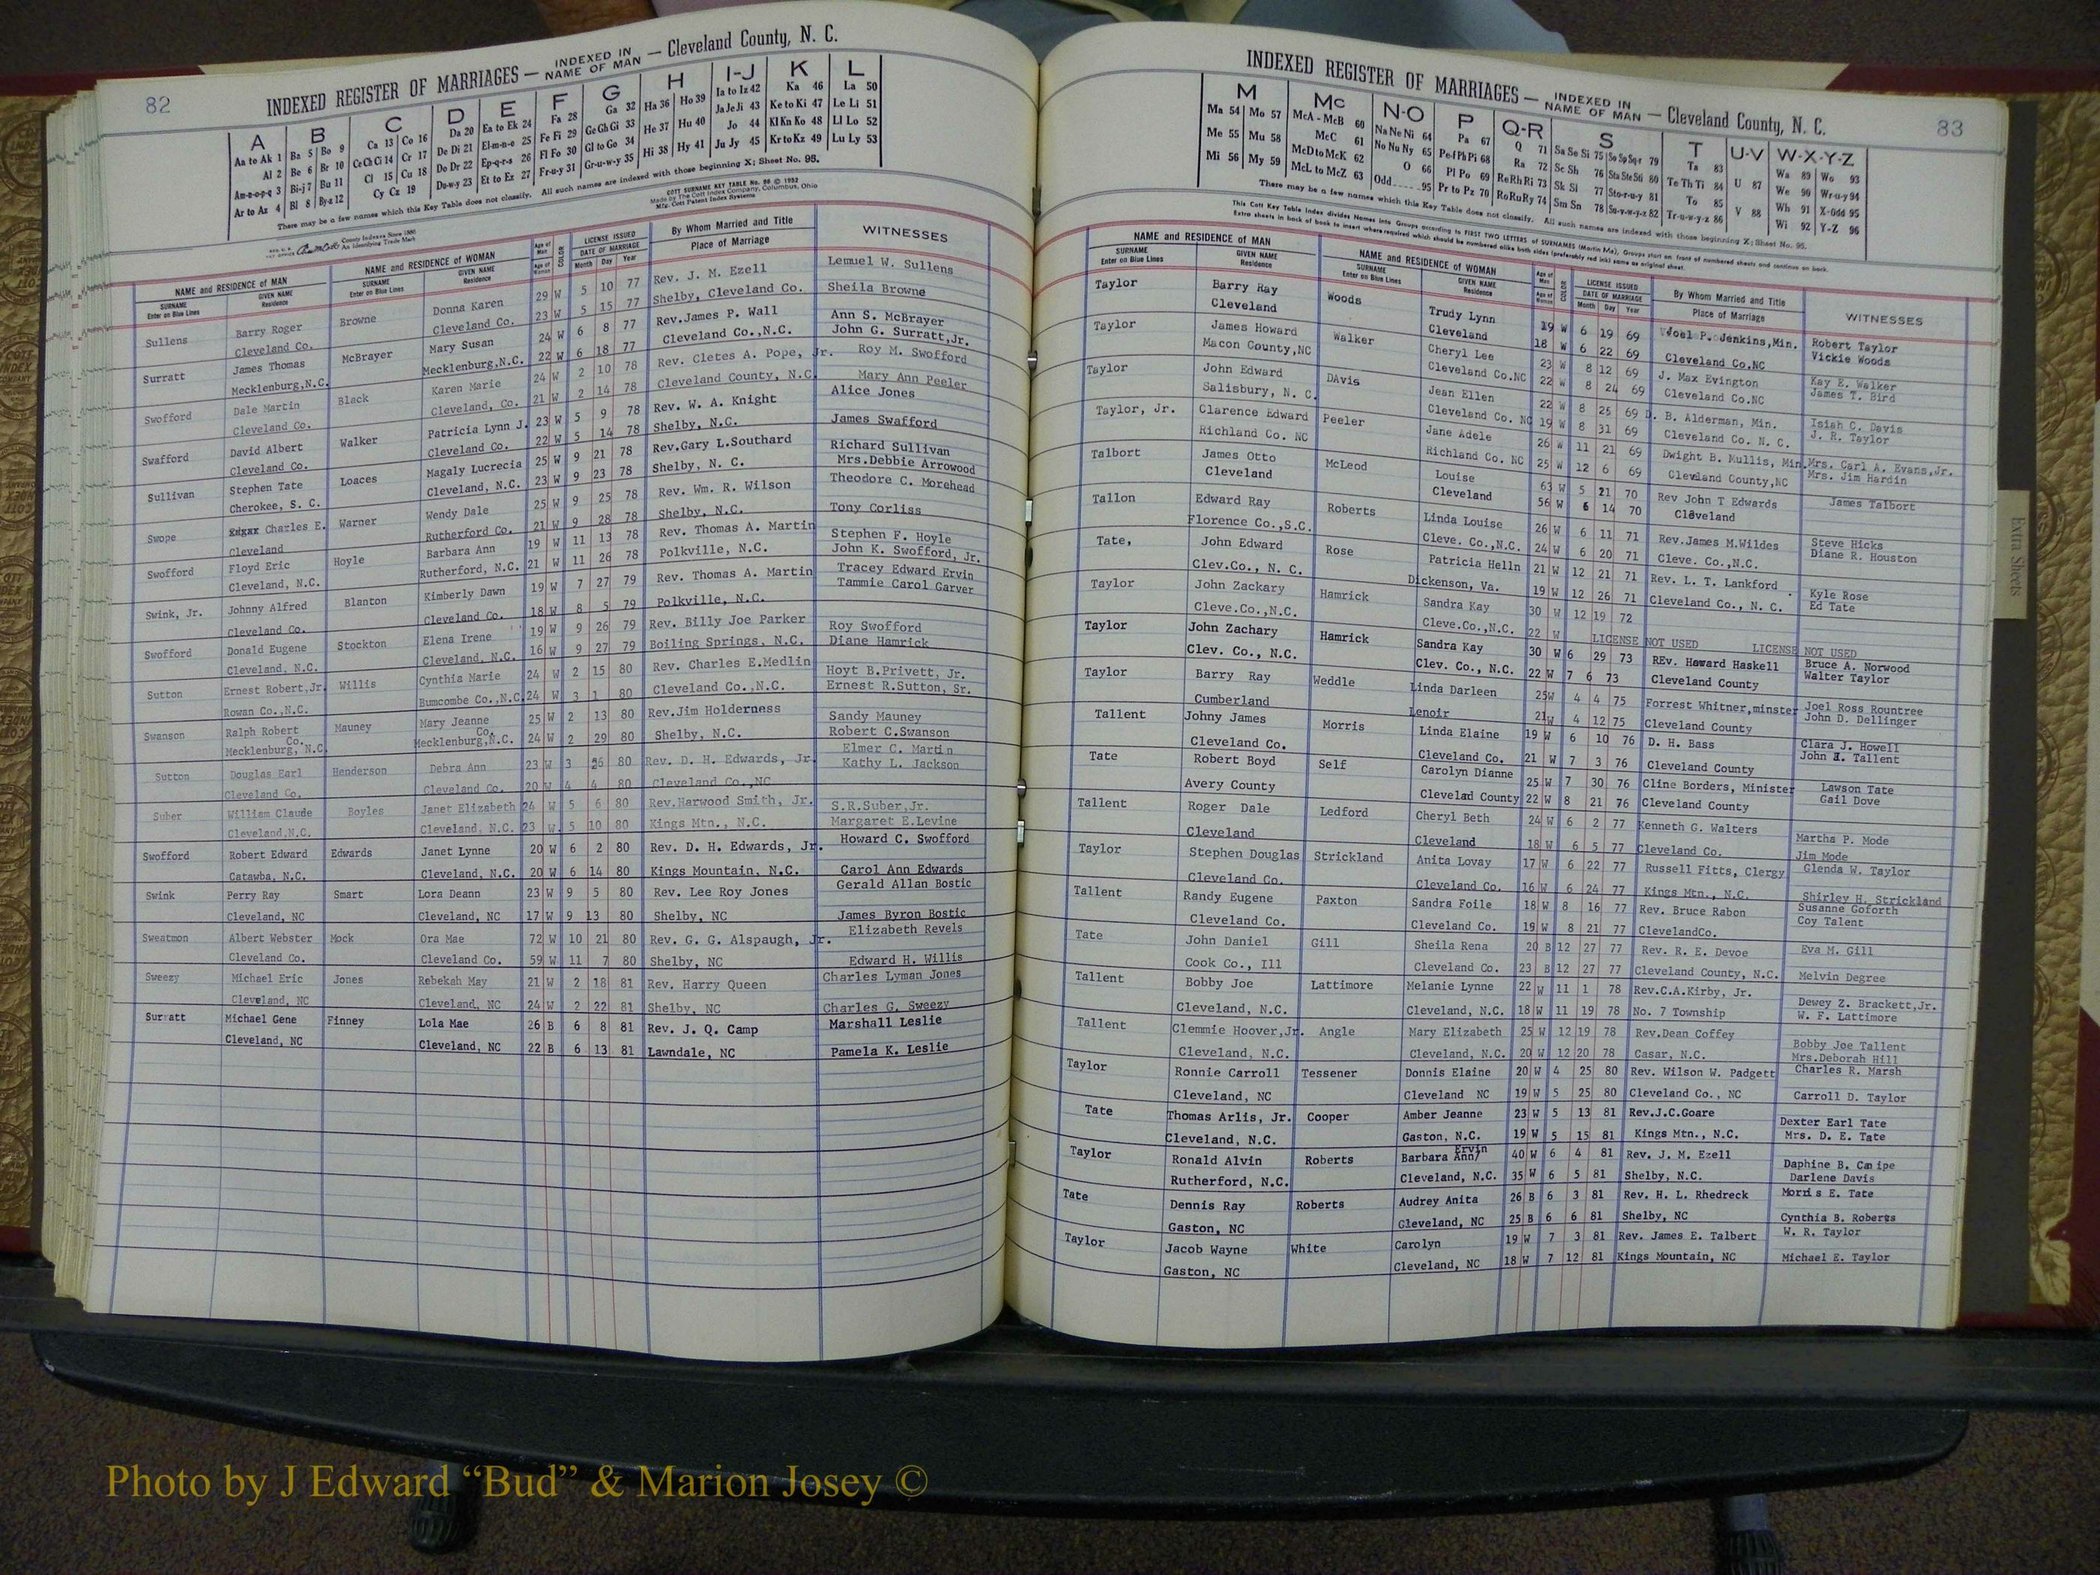 82
INDEXED REGISTER OF MARRIAGES — INDEXED IN NAME OF MAN — Cleveland County, N. C.
A B C D E F G H I-J K L
Aa to Ak 1 Ba 5 Bo 9 Ca 13 Co 16 Da 20 Ea to Ek 24 Fa 28 Ga 32 Ha 36 Ho 39 Ia to Iz 42 Ka 46 La 50
Al 2 Be 6 Br 10 Ce Ch Ci 14 Cr 17 De Di 21 El-m-n-o 25 Fe Fi 29 Ge Gh Gi 33 He 37 Hu 40 Ja Je Ji 43 Ke to Ki 47 Le Li 51
Am-n-o-p-q 3 Bi-j 7 Bu 11 Cl 15 Cu 18 Do Dr 22 Ep-q-r-s 26 Fl Fo 30 Gl to Go 34 Hi 38 Hy 41 Jo 44 Kl Kn Ko 48 Ll Lo 52
Ar to Az 4 Bl 8 By-z 12 Cy Cz 19 Du-w-y 23 Et to Ez 27 Fr-u-y 31 Gr-u-w-y 35 Ju Jy 45 Kr to Kz 49 Lu Ly 53
There may be a few names which this Key Table does not classify. All such names are indexed with those beginning X; Sheet No. 95.
COTT SURNAME KEY TABLE No. 96 © 1952
Made by The Cott Index Company, Columbus, Ohio
Mfg. Cott Patent Index Systems
County Indexes Since 1888
An Identifying Trade Mark
NAME and RESIDENCE of MAN NAME and RESIDENCE of WOMAN Age of Man Age of Woman COLOR LICENSE ISSUED DATE OF MARRIAGE By Whom Married and Title Place of Marriage WITNESSES
SURNAME Enter on Blue Lines GIVEN NAME Residence SURNAME Enter on Blue Lines GIVEN NAME Residence Month Day Year
Sullens Barry Roger Browne Donna Karen 29 W 5 10 77 Rev. J. M. Ezell Lemuel W. Sullens
Cleveland Co. Cleveland Co. 23 W 5 15 77 Shelby, Cleveland Co. Sheila Browne
Surratt James Thomas McBrayer Mary Susan 24 W 6 8 77 Rev.James P. Wall Ann S. McBrayer
Mecklenburg,N.C. Mecklenburg,N.C. 22 W 6 18 77 Cleveland Co.,N.C. John G. Surratt,Jr.
Swofford Dale Martin Black Karen Marie 24 W 2 10 78 Rev. Cletes A. Pope, Jr. Roy M. Swofford
Cleveland Co. Cleveland, Co. 21 W 2 14 78 Cleveland County, N.C. Mary Ann Peeler
Swafford David Albert Walker Patricia Lynn J. 23 W 5 9 78 Rev. W. A. Knight Alice Jones
Cleveland Co. Cleveland Co. 22 W 5 14 78 Shelby, N.C. James Swafford
Sullivan Stephen Tate Loaces Magaly Lucrecia 25 W 9 21 78 Rev.Gary L.Southard Richard Sullivan
Cherokee, S. C. Cleveland, N.C. 23 W 9 23 78 Shelby, N. C. Mrs.Debbie Arrowood
Swope Edgar Charles E. Warner Wendy Dale 25 W 9 25 78 Rev. Wm. R. Wilson Theodore C. Morehead
Cleveland Rutherford Co. 21 W 9 28 78 Shelby, N.C. Tony Corliss
Swofford Floyd Eric Hoyle Barbara Ann 19 W 11 13 78 Rev. Thomas A. Martin Stephen F. Hoyle
Cleveland, N.C. Rutherford, N.C. 21 W 11 26 78 Polkville, N.C. John K. Swofford, Jr.
Swink, Jr. Johnny Alfred Blanton Kimberly Dawn 19 W 7 27 79 Rev. Thomas A. Martin Tracey Edward Ervin
Cleveland Co. Cleveland Co. 18 W 8 5 79 Polkville, N.C. Tammie Carol Garver
Swofford Donald Eugene Stockton Elena Irene 19 W 9 26 79 Rev. Billy Joe Parker Roy Swofford
Cleveland, N.C. Cleveland, N.C. 16 W 9 27 79 Boiling Springs, N.C. Diane Hamrick
Sutton Ernest Robert,Jr. Willis Cynthia Marie 24 W 2 15 80 Rev. Charles E.Medlin Hoyt B.Privett, Jr.
Rowan Co.,N.C. Bumcombe Co.,N.C. 24 W 3 1 80 Cleveland Co.,N.C. Ernest R.Sutton, Sr.
Swanson Ralph Robert Mauney Mary Jeanne 25 W 2 13 80 Rev.Jim Holderness Sandy Mauney
Mecklenburg, Co. N.C. Mecklenburg, Co. N.C. 24 W 2 29 80 Shelby, N.C. Robert C.Swanson
Sutton Douglas Earl Henderson Debra Ann 23 W 3 26 80 Rev. D. H. Edwards, Jr. Elmer C. Martin
Cleveland Co. Cleveland Co. 20 W 4 4 80 Cleveland Co.,NC Kathy L. Jackson
Suber William Claude Boyles Janet Elizabeth 24 W 5 6 80 Rev.Harwood Smith, Jr. S.R.Suber,Jr.
Cleveland,N.C. Cleveland, N.C. 23 W 5 10 80 Kings Mtn., N.C. Margaret E.Levine
Swofford Robert Edward Edwards Janet Lynne 20 W 6 2 80 Rev. D. H. Edwards, Jr. Howard C. Swofford
Catawba, N.C. Cleveland, N.C. 20 W 6 14 80 Kings Mountain, N.C. Carol Ann Edwards
Swink Perry Ray Smart Lora Deann 23 W 9 5 80 Rev. Lee Roy Jones Gerald Allan Bostic
Cleveland, NC Cleveland, NC 17 W 9 13 80 Shelby, NC James Byron Bostic
Sweatmon Albert Webster Mock Ora Mae 72 W 10 21 80 Rev. G. G. Alspaugh, Jr. Elizabeth Revels
Cleveland Co. Cleveland Co. 59 W 11 7 80 Shelby, NC Edward H. Willis
Sweezy Michael Eric Jones Rebekah May 21 W 2 18 81 Rev. Harry Queen Charles Lyman Jones
Cleveland, NC Cleveland, NC 24 W 2 22 81 Shelby, NC Charles G. Sweezy
Surratt Michael Gene Finney Lola Mae 26 B 6 8 81 Rev. J. Q. Camp Marshall Leslie
Cleveland, NC Cleveland, NC 22 B 6 13 81 Lawndale, NC Pamela K. Leslie
83
INDEXED REGISTER OF MARRIAGES — INDEXED IN NAME OF MAN — Cleveland County, N. C.
M Mc N-O P Q-R S T U-V W-X-Y-Z
Ma 54 Mo 57 McA - McB 60 Na Ne Ni 64 Pa 67 Q 71 Sa Se Si 75 So Sp Sq-r 79 Ta 83 U 87 Wa 89 Wo 93
Me 55 Mu 58 McC 61 No Nu Ny 65 Pe-f Ph Pi 68 Ra 72 Sc Sh 76 Sta Ste Sti 80 Te Th Ti 84 V 88 We 90 Wr-u-y 94
Mi 56 My 59 McD to McK 62 O 66 Pl Po 69 Re Rh Ri 73 Sk Sl 77 Sto-r-u-y 81 To 85 Wh 91 X-Odd 95
McL to McZ 63 Odd 95 Pr to Pz 70 Ro Ru Ry 74 Sm Sn 78 Su-v-w-y-z 82 Tr-u-w-y-z 86 Wi 92 Y-Z 96
There may be a few names which this Key Table does not classify. All such names are indexed with those beginning X; Sheet No. 95.
This Cott Key Table Index divides Names into Groups according to FIRST TWO LETTERS of SURNAMES (Martin Ma). Groups start on front of numbered sheets and continue on back.
Extra sheets in back of book to insert where required which should be numbered alike both sides (preferably red ink) same as original sheet.
NAME and RESIDENCE of MAN NAME and RESIDENCE of WOMAN Age of Man Age of Woman COLOR LICENSE ISSUED DATE OF MARRIAGE By Whom Married and Title Place of Marriage WITNESSES
SURNAME Enter on Blue Lines GIVEN NAME Residence SURNAME Enter on Blue Lines GIVEN NAME Residence Month Day Year
Taylor Barry Ray Woods Trudy Lynn 19 W 6 19 69 Joel P. Jenkins,Min. Robert Taylor
Cleveland Cleveland 18 W 6 22 69 Cleveland Co.NC Vickie Woods
Taylor James Howard Walker Cheryl Lee 23 W 8 12 69 J. Max Evington Kay E. Walker
Macon County,NC Cleveland Co.NC 22 W 8 24 69 Cleveland Co.NC James T. Bird
Taylor John Edward DAvis Jean Ellen 22 W 8 25 69 D. B. Alderman, Min. Isiah C. Davis
Salisbury, N. C. Cleveland Co. NC 19 W 8 31 69 Cleveland Co. N. C. J. R. Taylor
Taylor, Jr. Clarence Edward Peeler Jane Adele 26 W 11 21 69 Dwight B. Mullis, Min. Mrs. Carl A. Evans,Jr.
Richland Co. NC Richland Co. NC 25 W 12 6 69 Cleveland County,NC Mrs. Jim Hardin
Talbort James Otto McLeod Louise 63 W 5 21 70 Rev John T Edwards James Talbort
Cleveland Cleveland 56 W 6 14 70 Cleveland
Tallon Edward Ray Roberts Linda Louise 26 W 6 11 71 Rev.James M.Wildes Steve Hicks
Florence Co.,S.C. Cleve. Co.,N.C. 24 W 6 20 71 Cleve. Co.,N.C. Diane R. Houston
Tate, John Edward Rose Patricia Helln 21 W 12 21 71 Rev. L. T. Lankford Kyle Rose
Clev.Co., N. C. Dickenson, Va. 19 W 12 26 71 Cleveland Co., N. C. Ed Tate
Taylor John Zackary Hamrick Sandra Kay 30 W 12 19 72
Cleve.Co.,N.C. Cleve.Co.,N.C. 22 W LICENSE NOT USED LICENSE NOT USED
Taylor John Zachary Hamrick Sandra Kay 30 W 6 29 73 REv. Howard Haskell Bruce A. Norwood
Clev. Co., N.C. Clev. Co., N.C. 22 W 7 6 73 Cleveland County Walter Taylor
Taylor Barry Ray Weddle Linda Darleen 25 W 4 4 75 Forrest Whitner,minster Joel Ross Rountree
Cumberland Lenoir 21 W 4 12 75 Cleveland County John D. Dellinger
Tallent Johny James Morris Linda Elaine 19 W 6 10 76 D. H. Bass Clara J. Howell
Cleveland Co. Cleveland Co. 21 W 7 3 76 Cleveland County John A. Tallent
Tate Robert Boyd Self Carolyn Dianne 25 W 7 30 76 Cline Borders, Minister Lawson Tate
Avery County Cleveland County 22 W 8 21 76 Cleveland County Gail Dove
Tallent Roger Dale Ledford Cheryl Beth 24 W 6 2 77 Kenneth G. Walters Martha P. Mode
Cleveland Cleveland 18 W 6 5 77 Cleveland Co. Jim Mode
Taylor Stephen Douglas Strickland Anita Lovay 17 W 6 22 77 Russell Fitts, Clergy Glenda W. Taylor
Cleveland Co. Cleveland Co. 16 W 6 24 77 Kings Mtn., N.C. Shirley H. Strickland
Tallent Randy Eugene Paxton Sandra Foile 18 W 8 16 77 Rev. Bruce Rabon Susanne Goforth
Cleveland Co. Cleveland Co. 19 W 8 21 77 ClevelandCo. Coy Talent
Tate John Daniel Gill Sheila Rena 20 B 12 27 77 Rev. R. E. Devoe Eva M. Gill
Cook Co., Ill Cleveland Co. 23 B 12 27 77 Cleveland County, N.C. Melvin Degree
Tallent Bobby Joe Lattimore Melanie Lynne 22 W 11 1 78 Rev.C.A.Kirby, Jr. Dewey Z. Brackett,Jr.
Cleveland, N.C. Cleveland, N.C. 18 W 11 19 78 No. 7 Township W. F. Lattimore
Tallent Clemmie Hoover,Jr. Angle Mary Elizabeth 25 W 12 19 78 Rev.Dean Coffey Bobby Joe Tallent
Cleveland, N.C. Cleveland, N.C. 20 W 12 20 78 Casar, N.C. Mrs.Deborah Hill
Taylor Ronnie Carroll Tessener Donnis Elaine 20 W 4 25 80 Rev. Wilson W. Padgett Charles R. Marsh
Cleveland, NC Cleveland NC 19 W 5 25 80 Cleveland Co., NC Carroll D. Taylor
Tate Thomas Arlis, Jr. Cooper Amber Jeanne 23 W 5 13 81 Rev.J.C.Goare Dexter Earl Tate
Cleveland, N.C. Gaston, N.C. 19 W 5 15 81 Kings Mtn., N.C. Mrs. D. E. Tate
Taylor Ronald Alvin Roberts Barbara Ann/ Ervin 40 W 6 4 81 Rev. J. M. Ezell Daphine B.
Rutherford, N.C. Cleveland, N.C. 35 W 6 5 81 Shelby, N.C. Darlene Davis
Tate Dennis Ray Roberts Audrey Anita 26 B 6 3 81 Rev. H. L. Rhedreck Morris E. Tate
Gaston, NC Cleveland, NC 25 B 6 6 81 Shelby, NC Cynthia B. Roberts
Taylor Jacob Wayne White Carolyn 19 W 7 3 81 Rev. James E. Talbert W. R. Taylor
Gaston, NC Cleveland, NC 18 W 7 12 81 Kings Mountain, NC Michael E. Taylor
Extra Sheets
Photo by J Edward “Bud” & Marion Josey ©